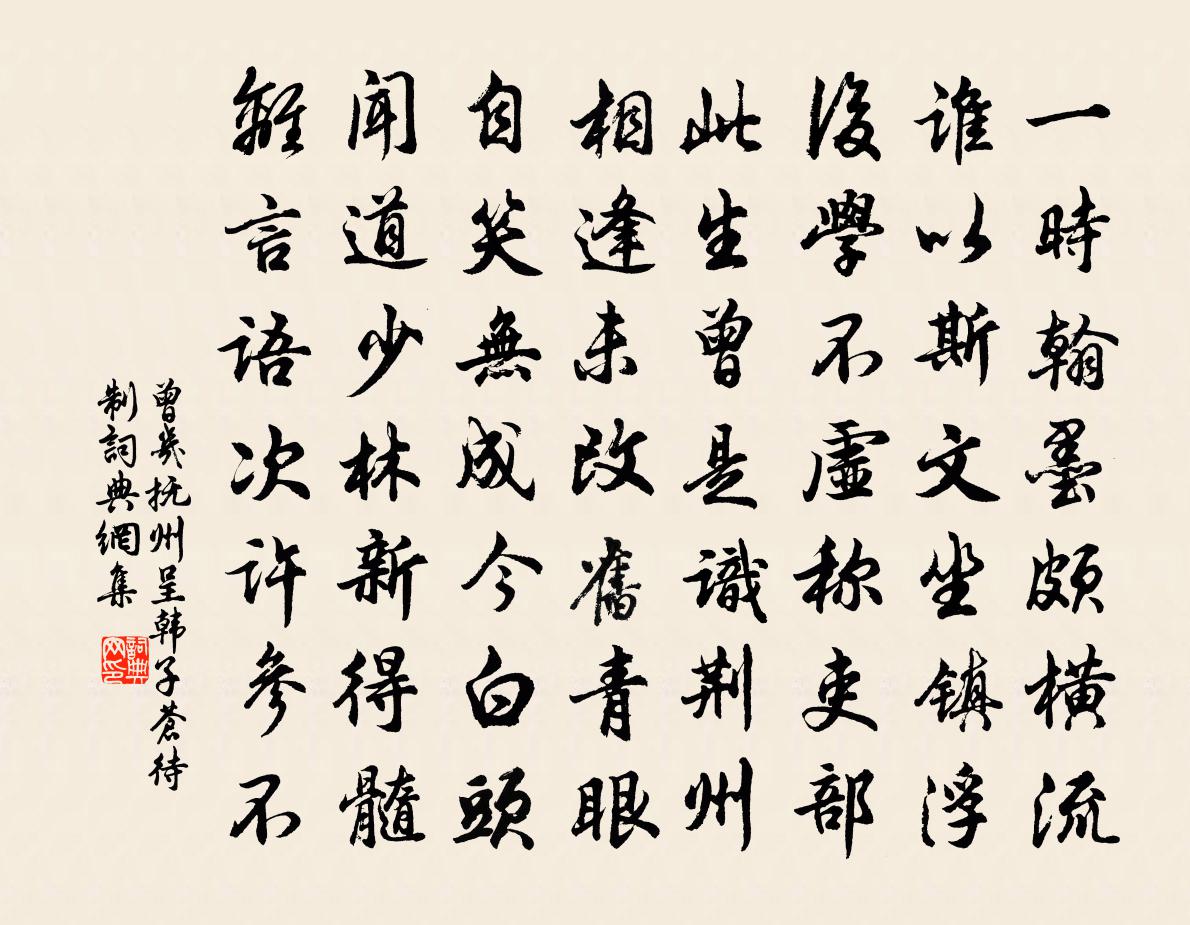 一時翰墨頗橫流
誰以斯文坐镇浮
後學不虛称吏部
此生曾是識荆州
相逢未改舊青眼
自笑無成今白頭
聞道少林新得髓
離言語次許參不
曾幾抚州呈韩子蒼待
制詞典網集
詞典
网印